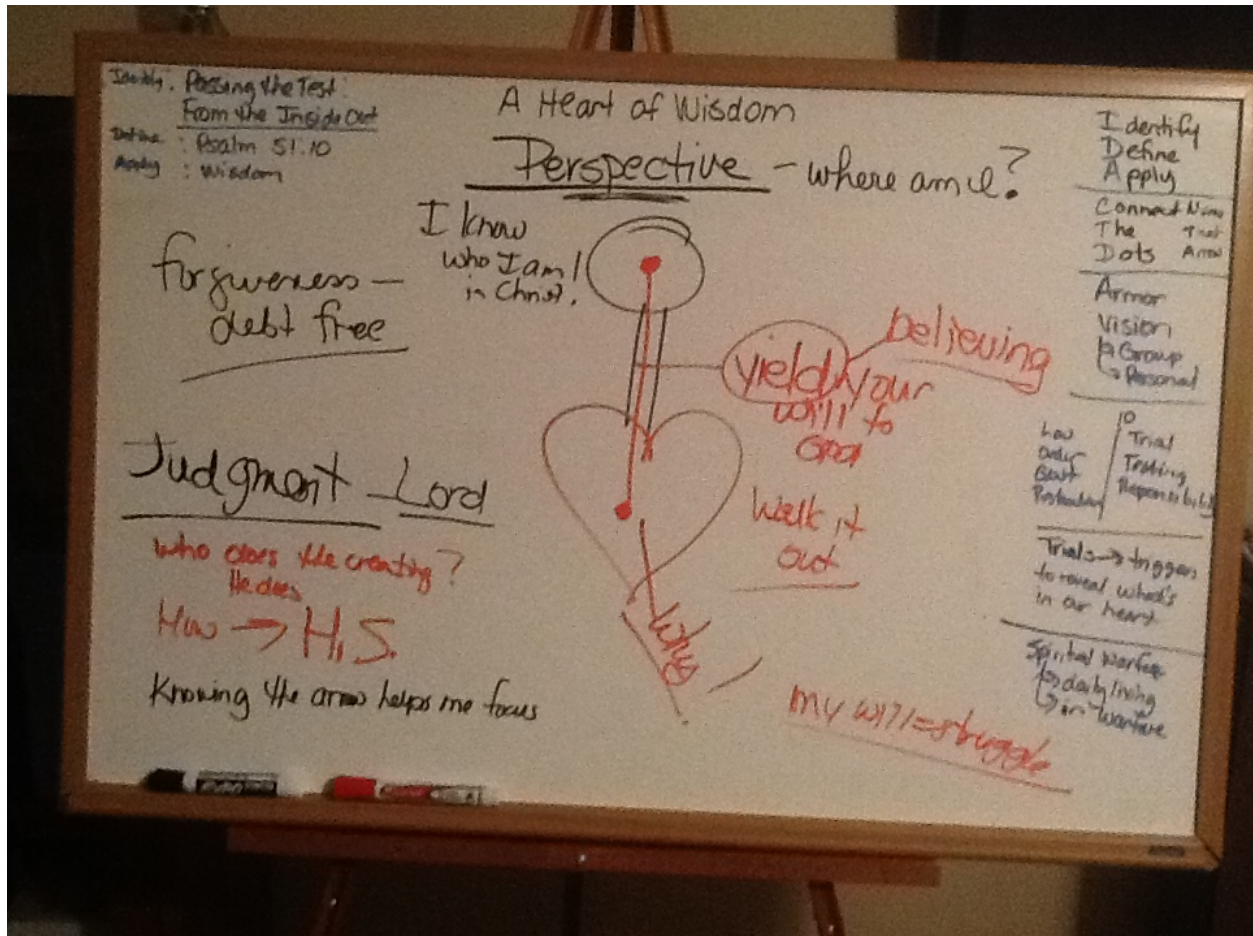 Identify : Passing the Test :
From the Inside Out
Define : Psalm 51:10
Apply : Wisdom
A Heart of Wisdom
Perspective - where am I?
I know
who I am!
in Christ.
forgiveness -
debt free
yield your
will to
God
believing
Walk it
out
Judgment - Lord
Who does the creating?
He does
How → H.S.
Knowing the arrow helps me focus
Why
my will = struggle
Identify
Define
Apply
Connect Name
The That
Dots Arrow
Armor
Vision
Group
Personal
Law
Order
10
Trial
Testing
Responsibility
Trials → triggers
to reveal what's
in our heart
Spiritual Warfare
daily living
in warfare